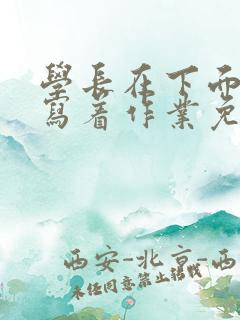 學長在下面
寫着作業免
西安-北京-西
未经同意禁止转载